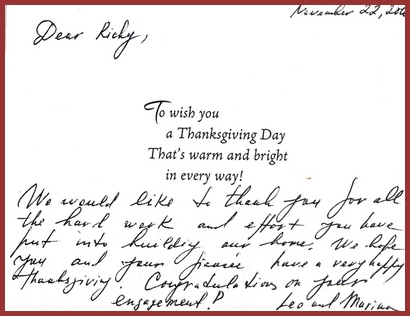 November 22, 20
Dear Richy,
To wish you
a Thanksgiving Day
That's warm and bright
in every way!
We would like to thank you for all
the hard work and effort you have
put into building our home. We hope
you and your fiancée have a very happy
Thanksgiving. Congratulations on your
engagement! Leo and Marina